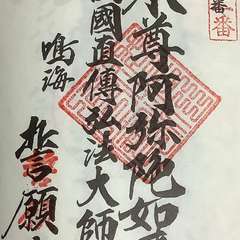 番
本尊阿弥陀如来
國直傳弘法大師
鳴海
誓願